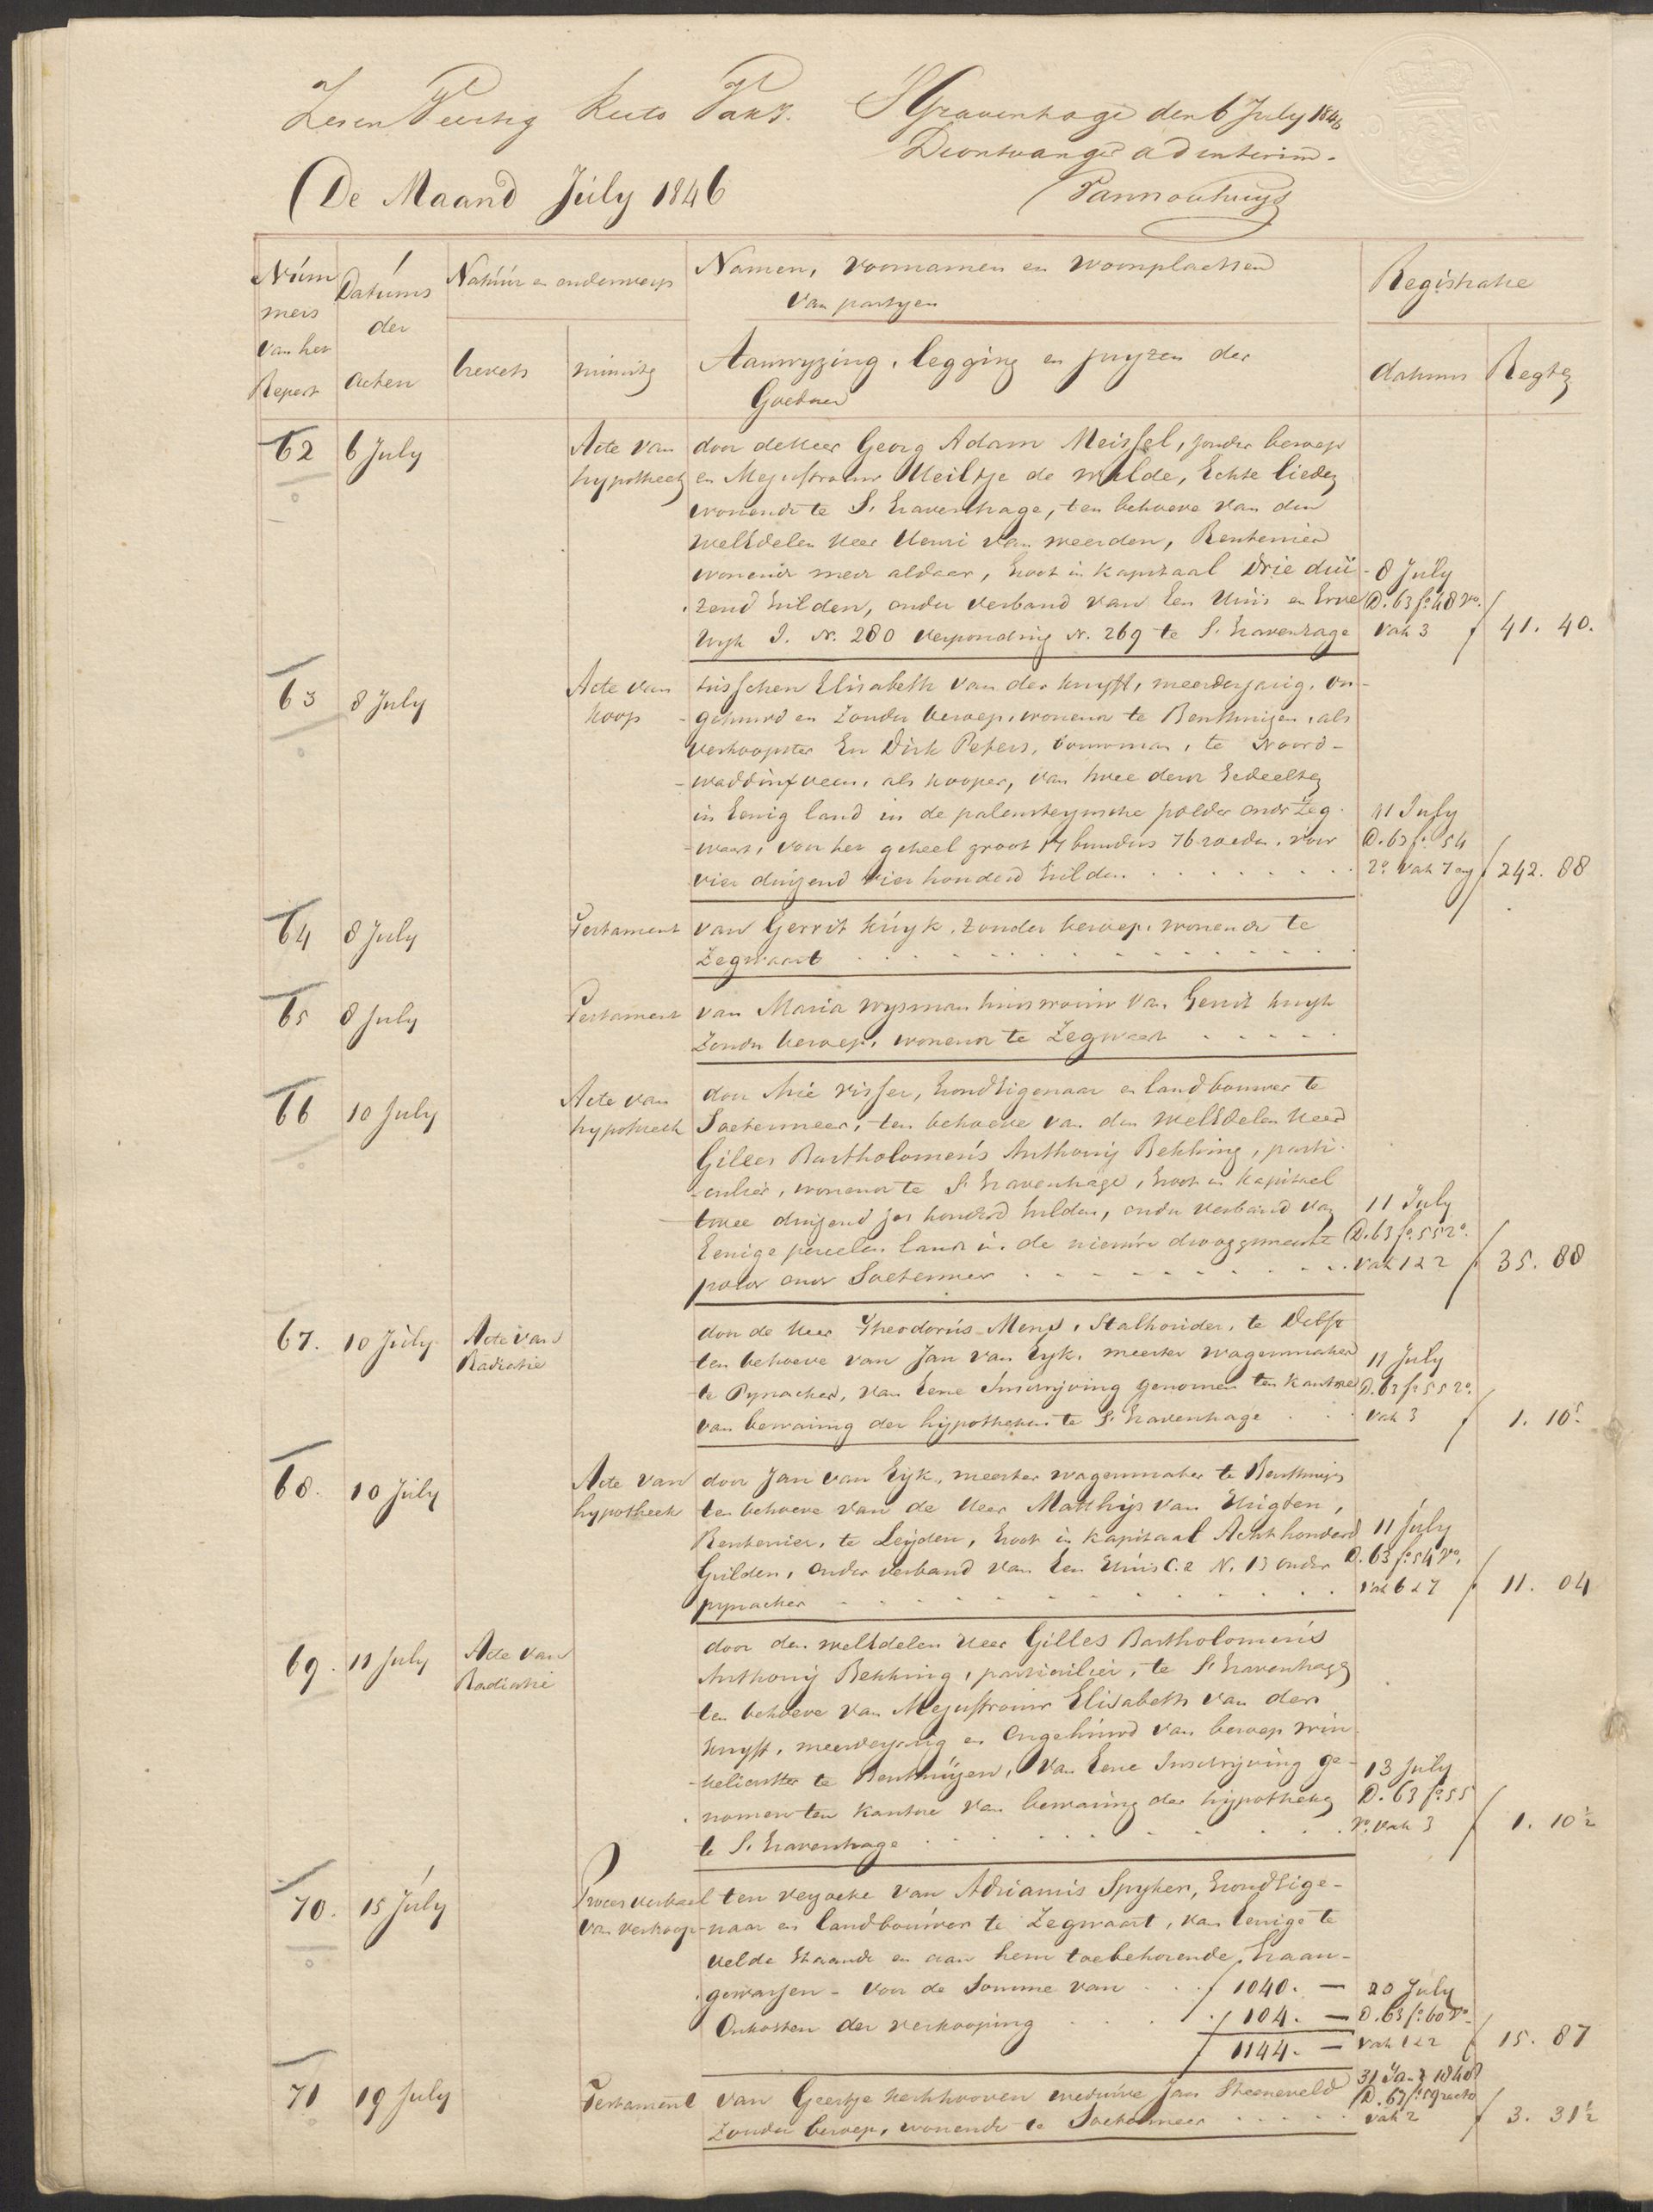 Recto Vak 7. S Gravenhage den 6 July 1846
De ontvanger ad interim.
De Maand July 1846
Núm
mers
van het
Repert
Datums
der
acten
Natuur en onderwerp
brevets
minuts
Namen, voornamen en woonplaetsen
van partyen
Aanwyzing, legging en pryzen der
Goederen
Registratie
datums
Regten
62 6 July Acte van door de Heer Georg Adam Meissel, zonder beroep
hypotheek en Mejufvrouw Neiltje de Milde, Echte lieden
wonende te S. Gravenhage, ten behoeve van den
WelEdelen Heer Henri van Weerden, Rentenier
wonende mede aldaar, Groot in Kapitaal Drie dui- 8 July
zend Gulden, onder verband van Een Huis en Erve D. 63 fo. 48 vo.
Wyk I. No. 280 verponding No. 269 te S. Gravenhage vak 3 f 41. 40.
63 8 July Acte van tusschen Elisabeth van der Kruyff, meerderjarig, on-
koop gehuwd en zonder beroep, wonende te Benthuizen, als
verkoopster En Dirk Peters, bouwman, te Noord-
waddinxveen, als kooper, van twee derde Gedeelten
in Eenig land in de palensteynsche polder onder Zeg- 11 July
waart, voor het geheel groot 17 bunders 76 roeden, voor D. 63 fo. 54
vier duizend vier honderd Gulden ro. vak 7 f 242. 88
64 8 July Testament van Gerrit Kuyk, zonder beroep, wonende te
Zegwaart
65 8 July Testament van Maria Wysman huisvrouw van Gerrit Kuyk
Zonder beroep, wonende te Zegwaart
66 10 July Acte van door Arie Visser, GrondEigenaar en landbouwer te
hypotheek Soetermeer, ten behoeve van den WelEdelen Heer
Gilles Bartholomeüs Anthony Bekking, parti-
culier, wonende te S. Gravenhage, Groot in Kapitaal
twee duizend zes honderd Gulden, onder verband van 11 July
Eenige perceelen land in de nieuwe drooggemaakte D. 63 fo. 55 ro.
polder onder Soetermeer vak 1 & 2 f 35. 88
67. 10 July Acte van door de Heer Theodorus Mens, Stalhouder, te Delft
Radiatie ten behoeve van Jan van Eyk, meester wagenmaker 11 July
te Pynacker, van Eene Inschrijving genomen ten kantore D. 63 fo. 55 ro.
van bewaring der hijpotheken te S. Gravenhage vak 3 f 1. 10 5
68. 10 July Acte van door Jan van Eijk, meester wagenmaker te Benthuizen
hypotheek ten behoeve van de Heer Matthijs van Hugten,
Rentenier, te Leijden, Groot in Kapitaal Acht honderd 11 July
Gulden, onder verband van Een Huis C. 2 N. 13 onder D. 63 fo. 54 vo.
pynacker vak 6 & 7 f 11. 04
69. 11 July Acte van door den WelEdelen Heer Gilles Bartholomeüs
Radiatie Anthony Bekking, particulier, te S. Gravenhage
ten behoeve van Mejufvrouw Elisabeth van der
Kruyff, meerderjarig en Ongehuwd van beroep win-
kelierster te Benthuizen, van Eene Inschrijving ge- 13 July
nomen ten kantore van bewaring der hijpotheken D. 63 fo. 55
te S. Gravenhage vo. vak 3 f 1. 10 ½
70. 15 July Proces verbaal ten verzoeke van Adrianus Spyker, GrondEige-
van verkoop naar en landbouwer te Zegwaart, van Eenige te
velde staande en aan hem toebehorende Graan-
gewassen - voor de Somme van f 1040. — 20 July
Onkosten der verkooping f 104. — D. 63 fo. 60 vo.
f 1144. — vak 1 & 2 f 15. 87
71 19 July Testament van Geertje Kerkhooven weduwe Jan Steeneveld 31 Jan. 1848 D. 67 fo. 59 recto
zonder beroep, wonende te Soetermeer vak 2 f 3. 31 ½